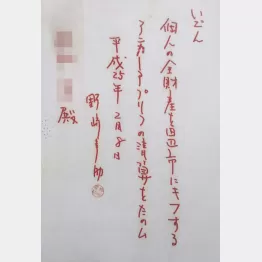 いごん
個人の全財産を田辺市にキフする
アンカー、アプリコの清算をたのム
平成25年2月8日
野崎幸助
殿